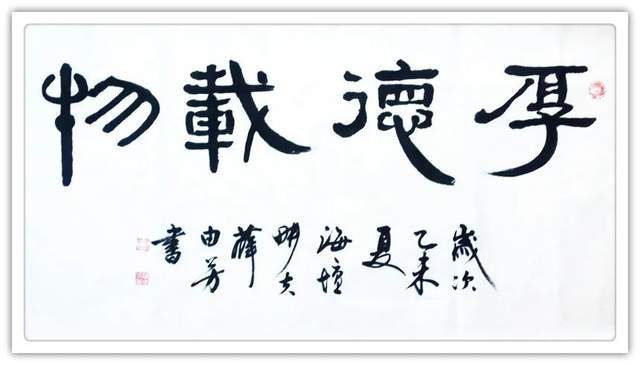 厚德載物
歲次
乙未
夏
海壇
耕夫
薛
由芳
書